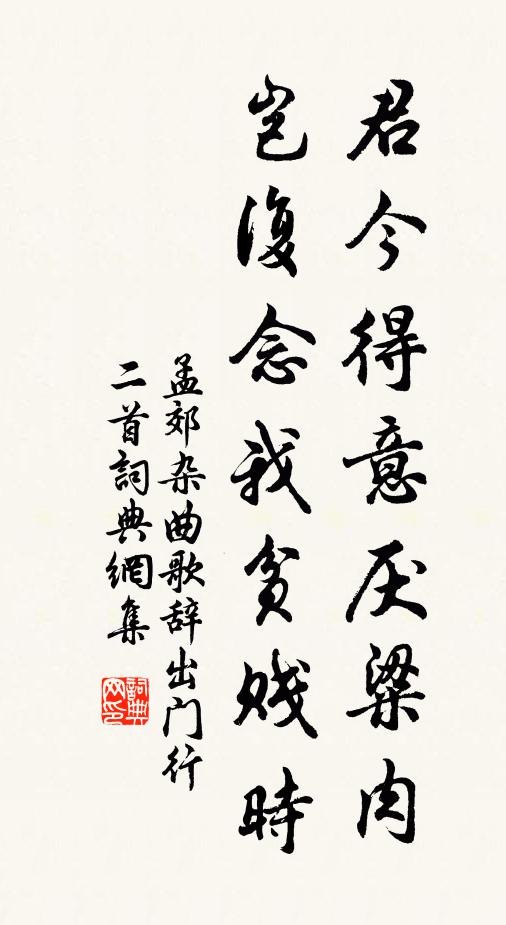 君今得意厌梁肉
岂復念我貧贱時
孟郊杂曲歌辞出门行
二首詞典網集
詞典
网印